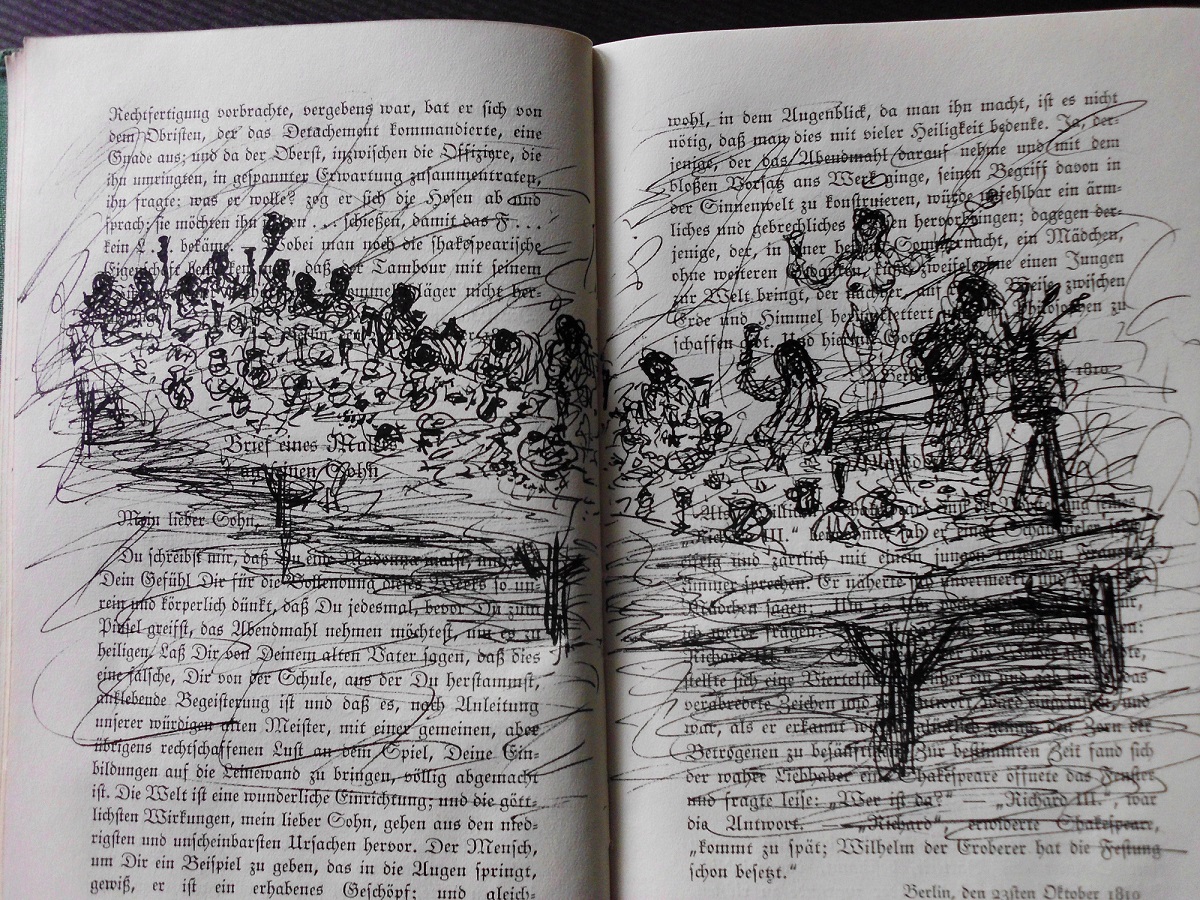 Rechtfertigung vorbrachte, vergebens war, bat er sich von
dem Obristen, der das Detachement kommandierte, eine
Gnade aus; und da der Oberst, inzwischen die Offiziere, die
ihn umringten, in gespannter Erwartung zusammentraten,
ihn fragte: was er wolle? zog er sich die Hosen ab und
sprach: sie möchten ihn ... schießen, damit das F ...
kein L. bekäme. Wobei man noch die shakespearische
Eigenschaft daß der Tambour mit seinem
nicht her-
Brief eines Malers
an seinen Sohn
Mein lieber Sohn,
Du schreibst mir, daß Du eine Madonna malst, und
Dein Gefühl Dir für die Vollendung dieses Werks so un-
rein und körperlich dünkt, daß Du jedesmal, bevor Du zum
Pinsel greifst, das Abendmahl nehmen möchtest, um es zu
heiligen. Laß Dir von Deinem alten Vater sagen, daß dies
eine falsche, Dir von der Schule, aus der Du herstammst,
anklebende Begeisterung ist und daß es, nach Anleitung
unserer würdigen alten Meister, mit einer gemeinen, aber
übrigens rechtschaffenen Lust an dem Spiel, Deine Ein-
bildungen auf die Leinewand zu bringen, völlig abgemacht
ist. Die Welt ist eine wunderliche Einrichtung; und die gött-
lichsten Wirkungen, mein lieber Sohn, gehen aus den nied-
rigsten und unscheinbarsten Ursachen hervor. Der Mensch,
um Dir ein Beispiel zu geben, das in die Augen springt,
gewiß, er ist ein erhabenes Geschöpf; und gleich-
wohl, in dem Augenblick, da man ihn macht, ist es nicht
nötig, daß man dies mit vieler Heiligkeit bedenke. Ja, der-
jenige, der das Abendmahl darauf nehme und mit dem
bloßen Vorsatz ans Werk ginge, seinen Begriff davon in
der Sinnenwelt zu konstruieren, würde unfehlbar ein ärm-
liches und gebrechliches hervorbringen; dagegen der-
jenige, der, in einer Sommernacht, ein Mädchen,
ohne weiteren küßt, zweifelsohne einen Jungen
zur Welt bringt, der nachher, auf Weise, zwischen
Erde und Himmel herumklettert Philosophen zu
schaffen gibt. Und hiermit Gott
Berlin 1810
Als Shakespeare
„Richard III.“ sah er einen Schauspieler
eifrig und zärtlich mit einem jungen Frauen-
zimmer sprechen. Er näherte sich unvermerkt und
Mädchen sagen: „Um
ich werde fragen:
Richard III.
stellte sich eine Viertelstunde früher ein und gab das
verabredete Zeichen und die Antwort, ward eingelassen, und
war, als er erkannt glücklich genug, den Zorn der
Betrogenen zu besänftigen. Zur bestimmten Zeit fand sich
der wahre Liebhaber ein. Shakespeare öffnete das Fenster
und fragte leise: „Wer ist da?“ — „Richard III.“, war
die Antwort. — „Richard“, erwiderte Shakespeare,
„kommt zu spät; Wilhelm der Eroberer hat die Festung
schon besetzt.“
Berlin, den 23sten Oktober 1810